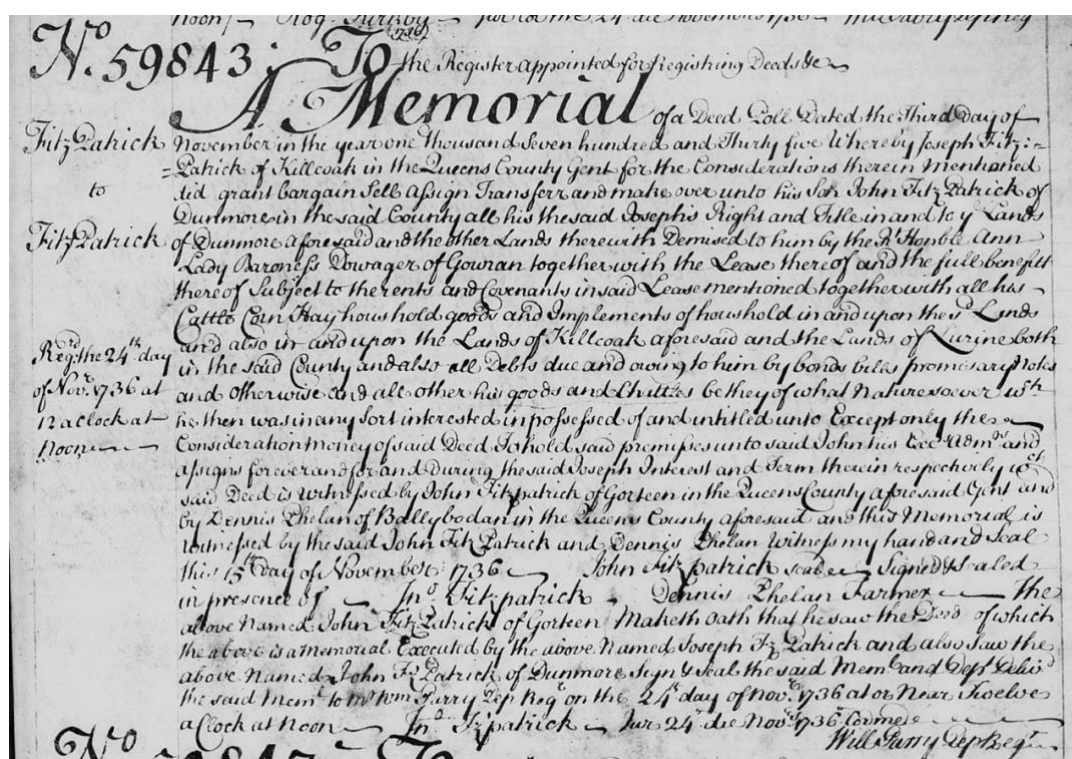 Noon
24 die Novemb 1736
N.o 59843: To the Register appointed for Registring Deeds &c
A Memorial of a Deed Poll Dated the Third Day of
November in the year one thousand Seven hundred and Thirty five Whereby Joseph Fitz:=
=Patrick of Killcoak in the Queens County Gent for the Considerations therein Mentioned
did grant bargain Sell Assign Transferr and make over unto his Son John Fitz Patrick of
Dunmore in the said County all his the said Josephs Right and Title in and to ye Lands
of Dunmore aforesaid and the other Lands therewith Demised to him by the Rt Honble Ann
Lady Baroness Dowager of Gowran together with the Lease thereof and the full benefitt
thereof Subject to the rents and Covenants in said Lease mentioned together with all his
Cattle Corn Hay houshold goods and Implements of houshold in and upon the sd Lands
and also in and upon the Lands of Killcoak aforesaid and the Lands of Lurine both
in the said County and also all Debts due and owing to him by bonds bills promisary Notes
and otherwise and all other his goods and Chattles be they of what Nature soever wch
he then was in any sort interested in possessed of and intitled unto Except only the
Consideration money of said Deed To hold said premisses unto said John his Exrs Adms and
assigns forever and for and During the said Joseph Interest and Term therein respectively wch
said Deed is Witnessed by John Fitzpatrick of Gorteen in the Queens County aforesaid Gent and
by Dennis Phelan of Ballybodan in the Queens County aforesaid and this Memorial is
Witnessed by the said John Fitz Patrick and Dennis Phelan Witness my hand and Seal
this 15th Day of November 1736 John Fitzpatrick seal Signed & Sealed
in presence of Jno Fitzpatrick Dennis Phelan Farmer The
above Named John Fitz Patrick of Gorteen Maketh Oath that he saw the Deed of which
the above is a Memorial Executed by the above Named Joseph Fz Patrick and also saw the
above Named John Fz Patrick of Dunmore Sign & Seal the said Meml and Dept Delivd
the said Meml to Mr Wm Parry Dep Regr on the 24th day of Novr 1736 at or Near Twelve
a Clock at Noon Jno Fzpatrick Jur 24o die Novr 1736 Cor me
Will Parry Dep Regr
Fitz Patrick
to
Fitz Patrick
Regd the 24th day
of Novr 1736 at
12 a Clock at
Noon
No